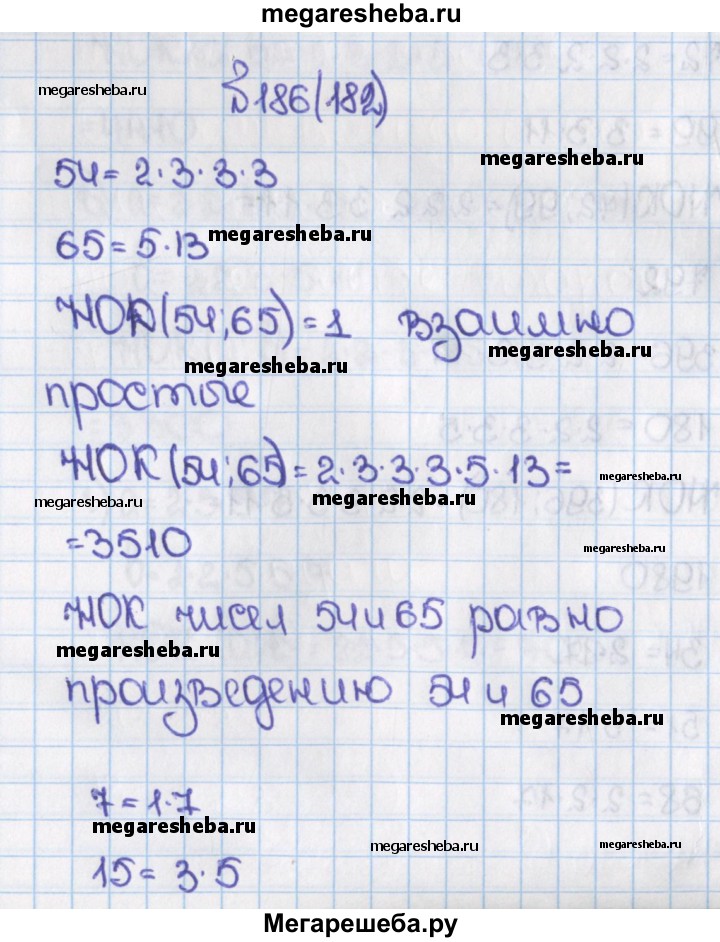 megaresheba.ru
megaresheba.ru
№186(182)
megaresheba.ru
54=2·3·3·3
65=5·13
megaresheba.ru
НОД(54;65)=1 взаимно
megaresheba.ru
megaresheba.ru
простые
НОК(54;65)=2·3·3·3·5·13=
megaresheba.ru
megaresheba.ru
=3510
megaresheba.ru
НОК чисел 54 и 65 равно
megaresheba.ru
произведению 54 и 65
megaresheba.ru
7=1·7
megaresheba.ru
megaresheba.ru
15=3·5
Мегарешеба.ру